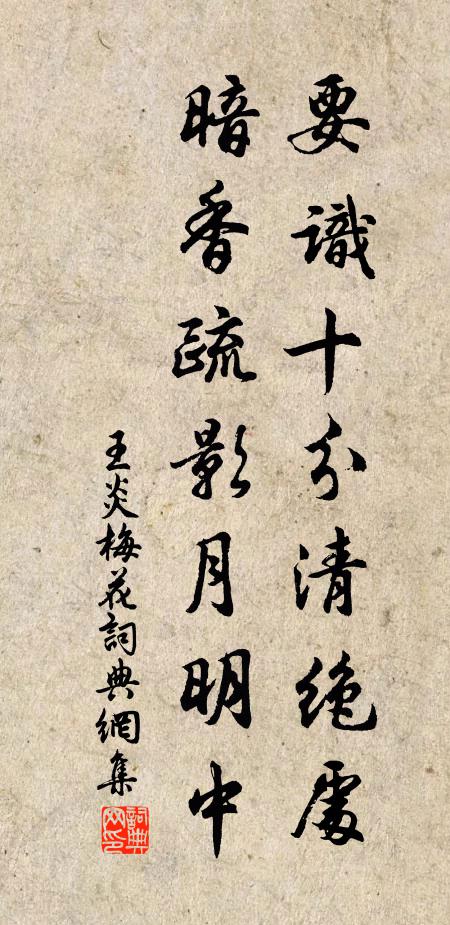 要識十分清絶處
暗香疏影月明中
王炎梅花詞典網集
詞典網印